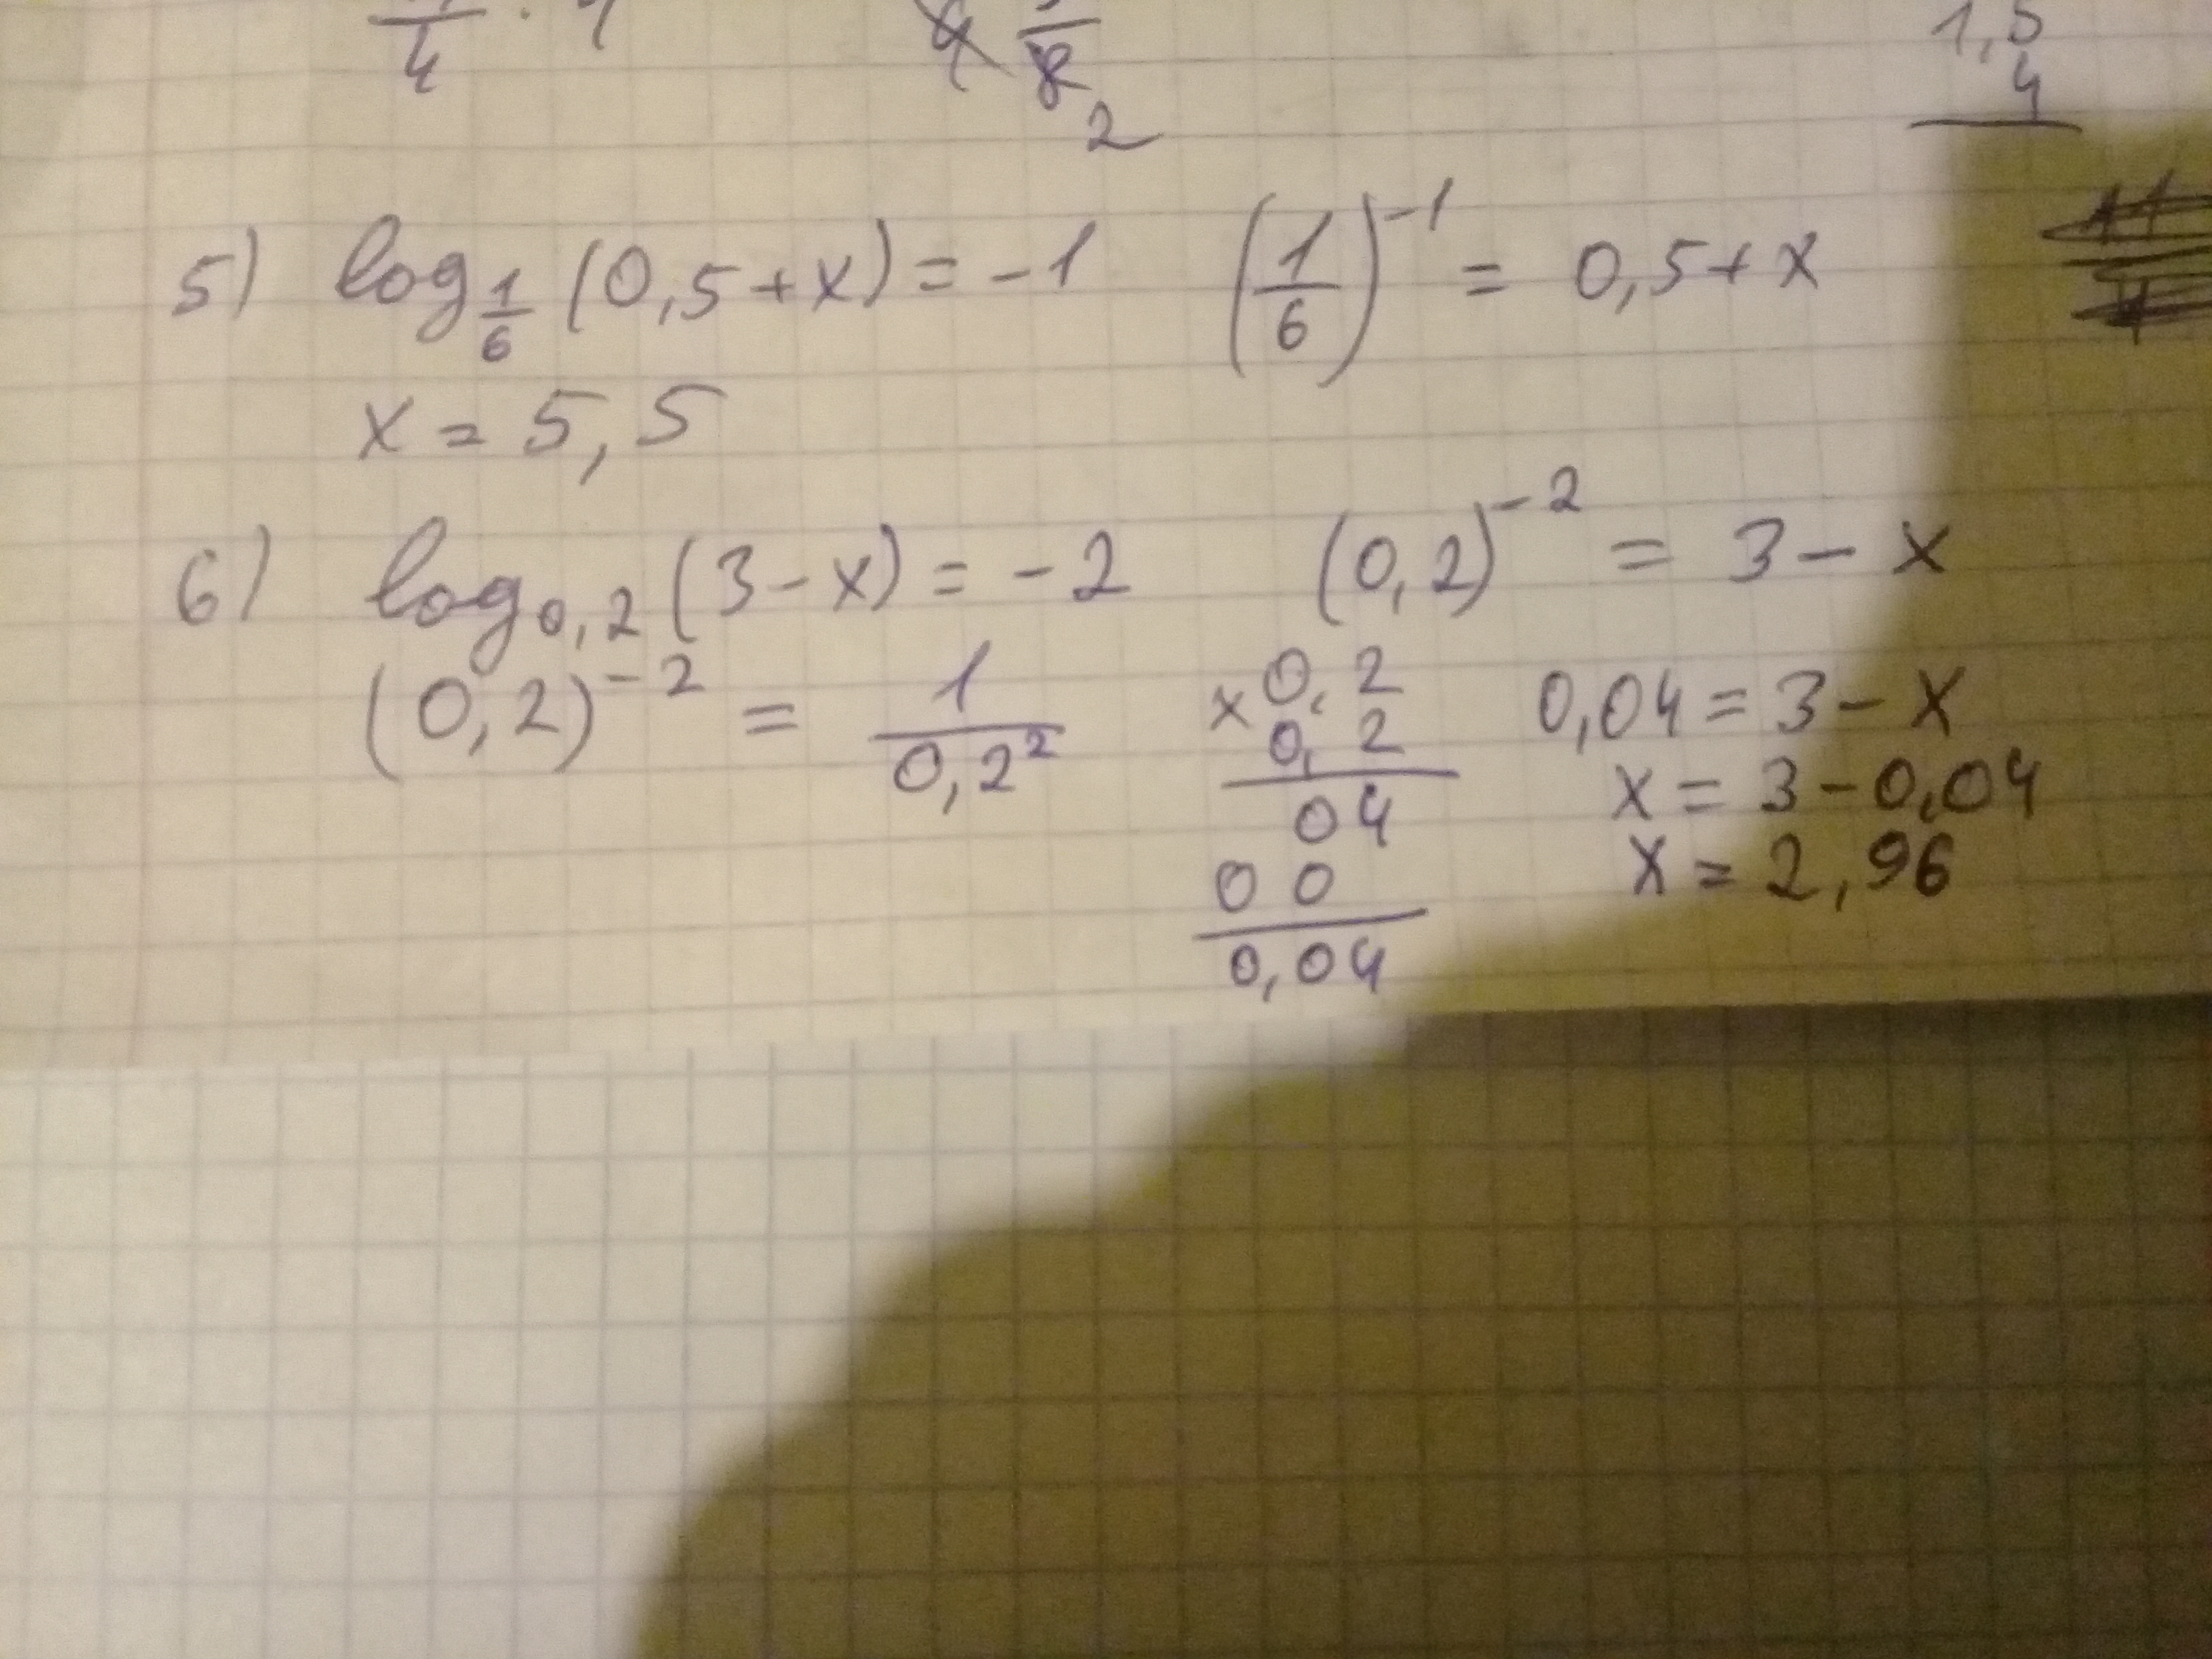 4
4 8
2
1,5
4
5) log_{1/6} (0,5+x) = -1 (1/6)^{-1} = 0,5+x
x = 5,5
6) log_{0,2} (3-x) = -2 (0,2)^{-2} = 3-x
(0,2)^{-2} = 1/0,2^2
x 0,2
0,2
04
00
0,04
0,04 = 3-x
x = 3-0,04
x = 2,96